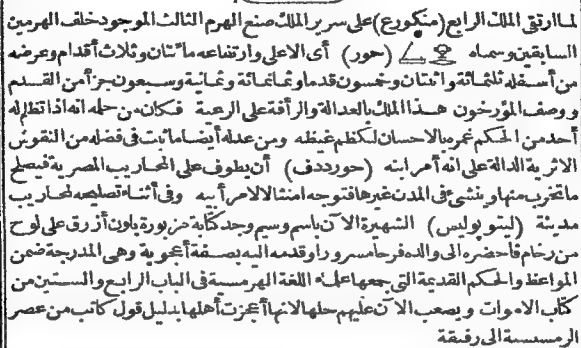 لما ارتقى الملك الرابع (منكورع) على سرير الملك صنع الهرم الثالث الموجود خلف الهرمين
السابقين وسماه (حور) أى الاعلى وارتفاعه مائتان وثلاث أقدام وعرضه
من أسفله ثلثمائة واثنتان وخمسون قدما وثمانمائة وثمانية وسبعون جزأ من القدم
ووصف المؤرخون هذا الملك بالعدالة والرأفة على الرعية فكان من حلمه انه اذا تظلم له
أحد من الحكم غمره بالاحسان لكظم غيظه ومن عدله أيضا ما ثبت فى فضله من النقوش
الاثرية الدالة على انه أمر ابنه (حورددف) أن يطوف على المحاريب المصرية فيصلح
ما تخرب منها وينشئ فى المدن غيرها فتوجه امتثالا لامر أبيه وفى أثناء تصليحه لمحاريب
مدينة (ليتوپوليس) الشهيرة الآن باسم وسيم وجد كتابة مزبورة بلون أزرق على لوح
من رخام فأحضره الى والده فرحا مسرورا وقدمه اليه بصفة أعجوبة وهى المدرجة ضمن
المواعظ والحكم القديمة التى جمعها علماء اللغة الهرمسية فى الباب الرابع والستين من
كتاب الاموات ويصعب الآن عليهم حلها لانها أعجزت أهلها بدليل قول كاتب من عصر
الرمسيسية الى رفيقه